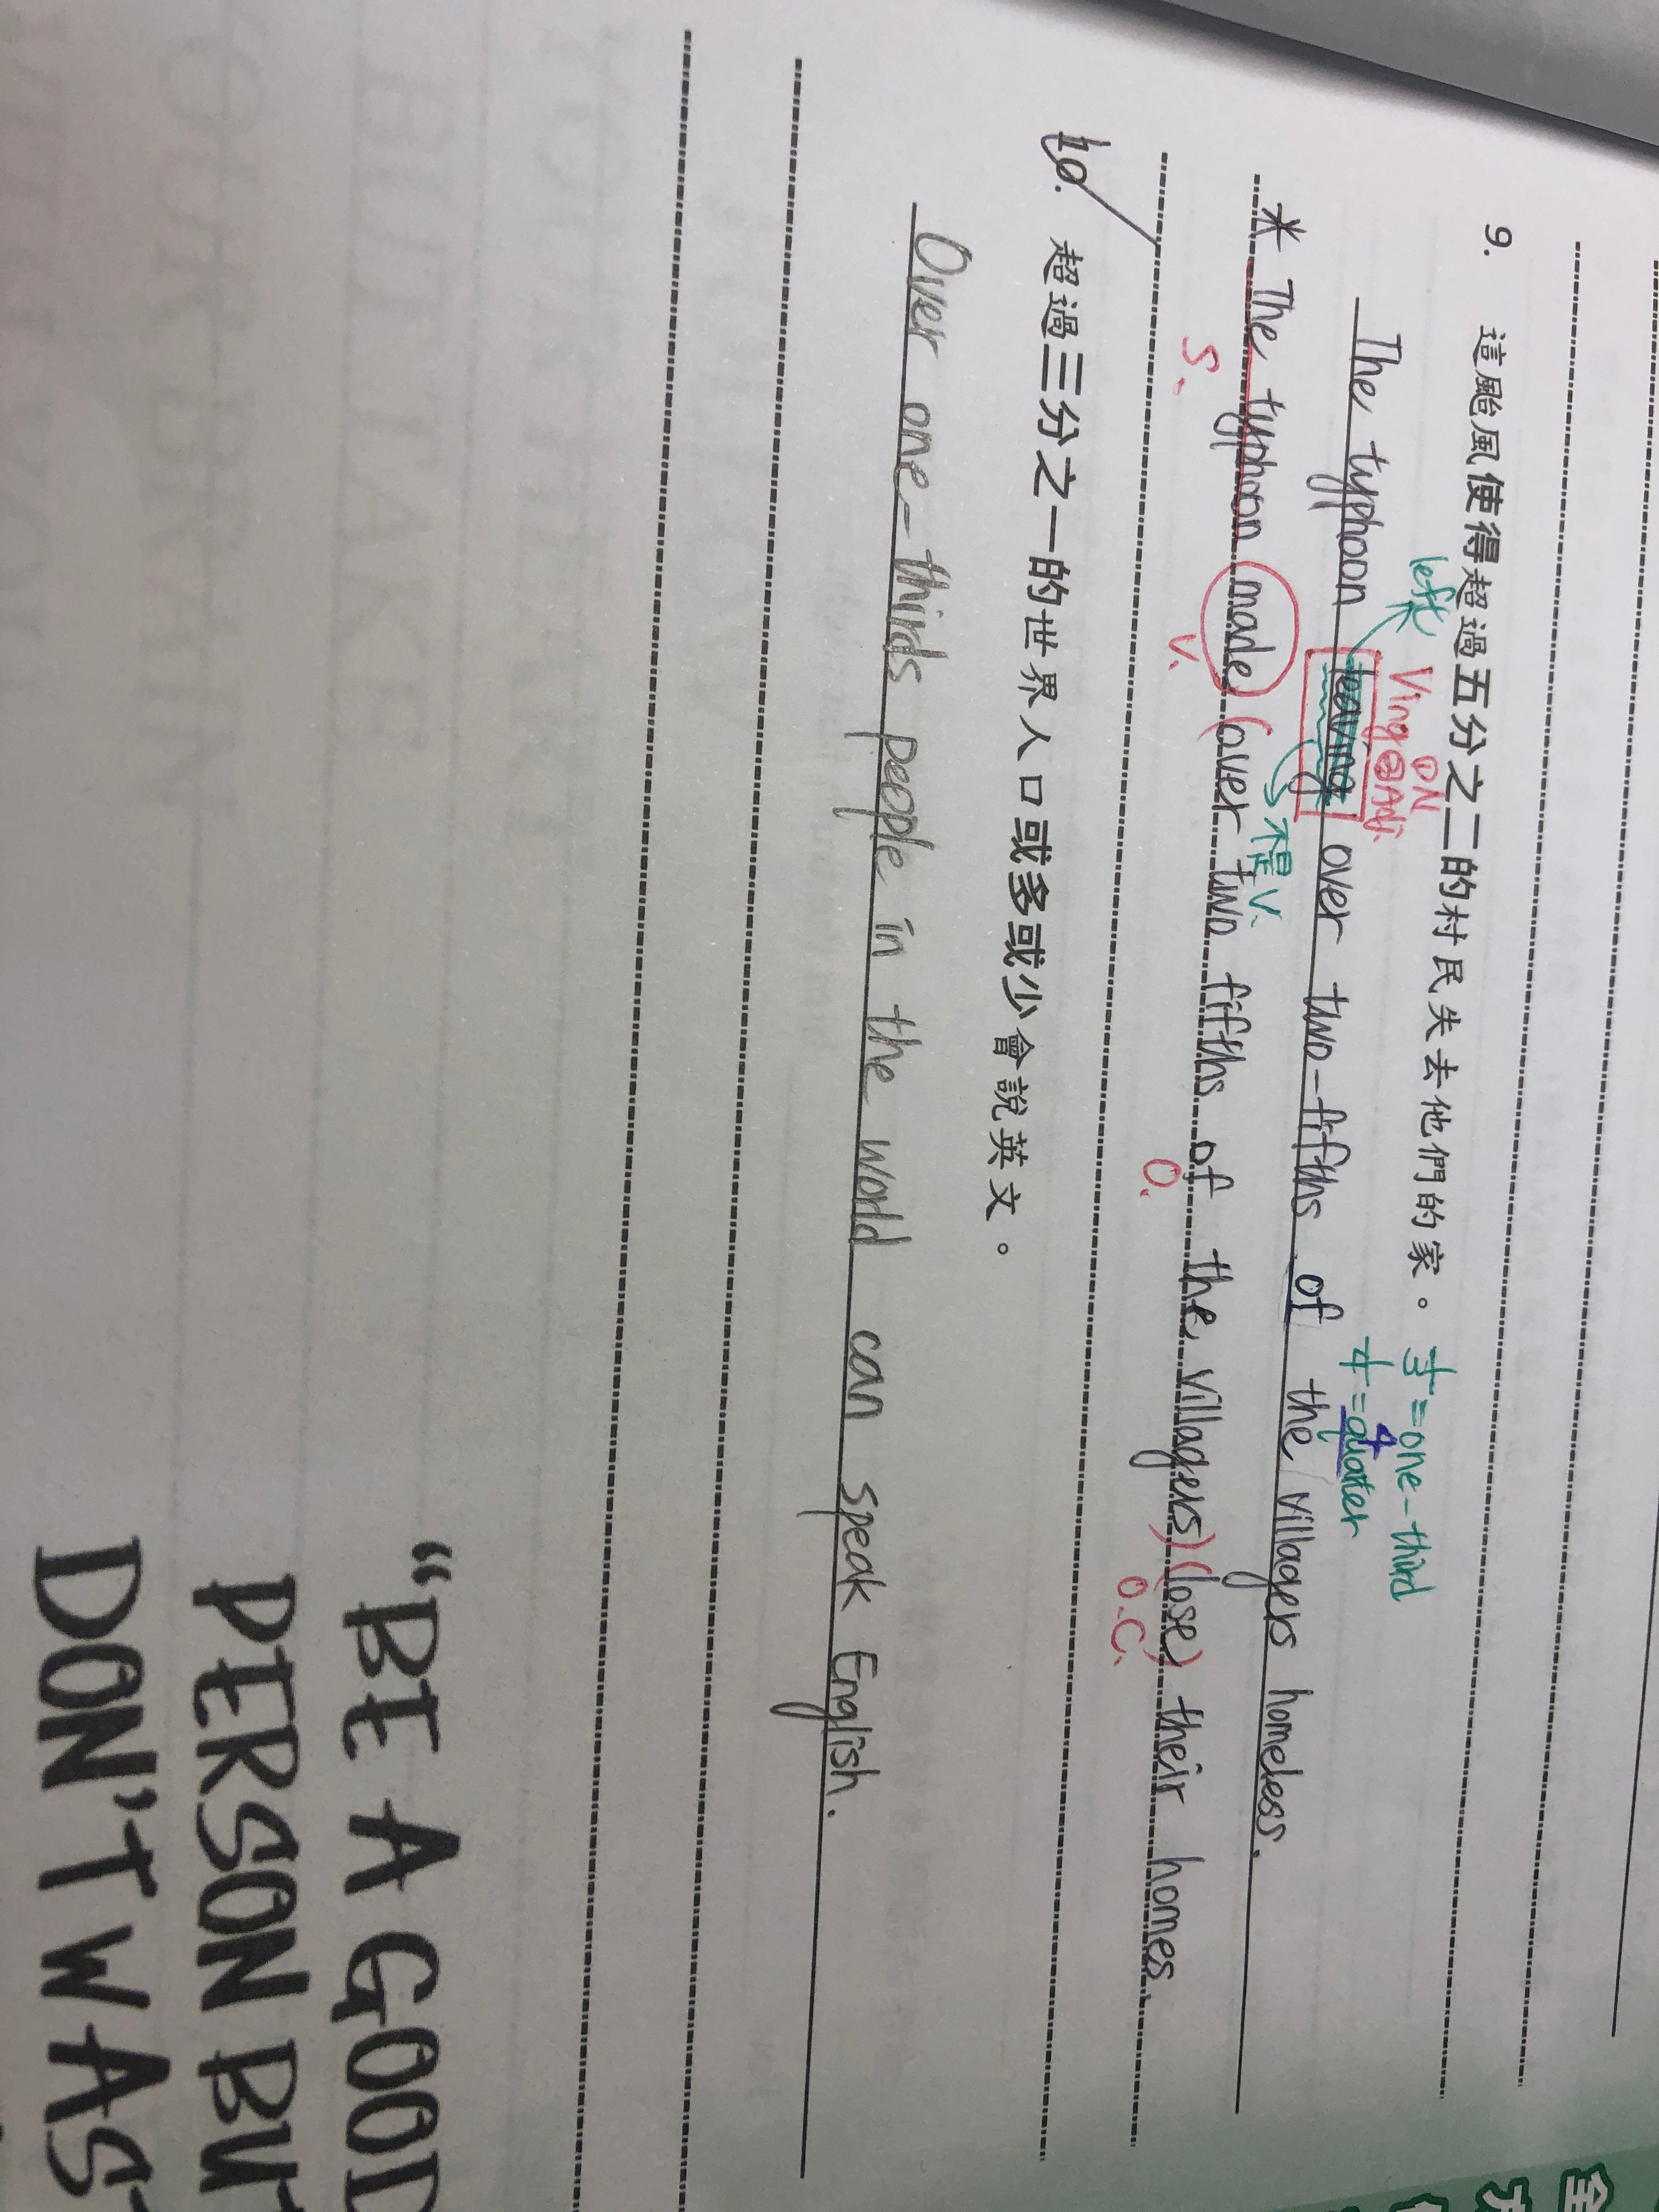 9. 這颱風使得超過五分之二的村民失去他們的家。
left
Ving ①N
②Adj.
1/3 = one-third
4
1/4 = quarter
The typhoon leaving over two-fifths of the villagers homeless.
不是V.
* The typhoon made (over two fifths of the villagers) (lose) their homes.
S. V. O. O.C.
10. 超過三分之一的世界人口或多或少會說英文。
Over one-thirds people in the world can speak English.
"BE A GOOD
PERSON BU
DON'T WAS